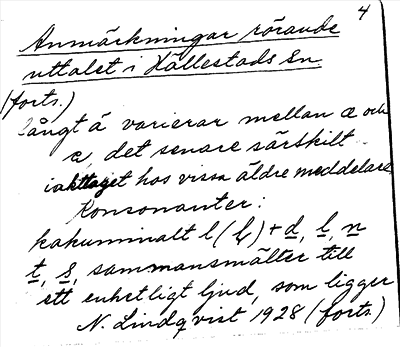 4
Anmärkningar rörande
uttalet i Hällestads sn
(forts.)
Långt ä varierar mellan æ och
e, det senare särskilt
iakttaget hos vissa äldre meddelare.
Konsonanter:
kakuminalt l (ɽ) + d, l, n
t, s, sammansmälter till
ett enhetligt ljud, som ligger
N. Lindqvist 1928 (forts.)